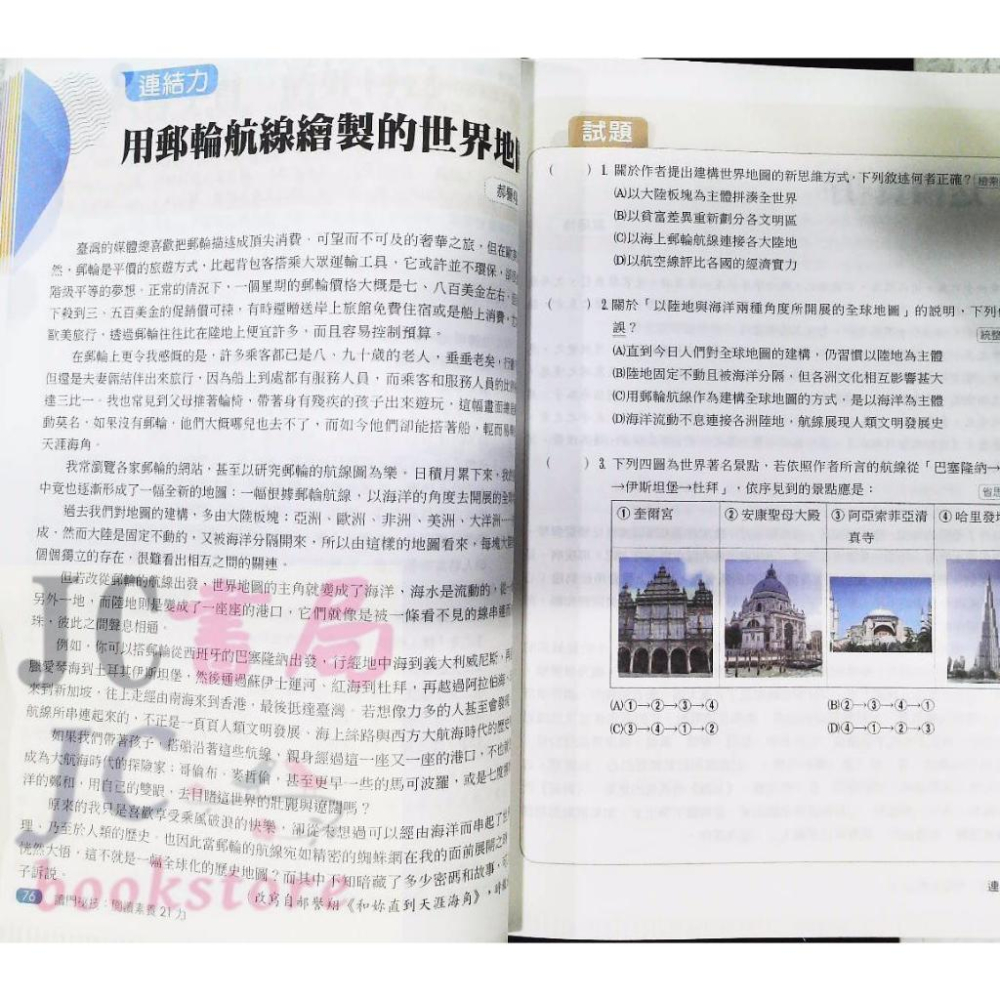 連結力
用郵輪航線繪製的世界地
郝譽
臺灣的媒體總喜歡把郵輪描述成頂尖消費,可望而不可及的奢華之旅,但在歐
然,郵輪是平價的旅遊方式,比起背包客搭乘大眾運輸工具,它或許並不環保,
階級平等的夢想。正常的情況下,一個星期的郵輪價格大概是七、八百美金左右,
下殺到三、五百美金的促銷價可揀,有時還贈送岸上旅館免費住宿或是船上消費,
歐美旅行,透過郵輪往往比在陸地上便宜許多,而且容易控制預算。
在郵輪上更令我感慨的是,許多乘客都已是八、九十歲的老人,垂垂老矣,行
但還是夫妻倆結伴出來旅行,因為船上到處都有服務人員,而乘客和服務人員的比
達三比一。我也常見到父母推著輪椅,帶著身有殘疾的孩子出來遊玩,這幅畫面
動莫名,如果沒有郵輪,他們大概哪兒也去不了,而如今他們卻能搭著船,輕而易
天涯海角。
我常瀏覽各家郵輪的網站,甚至以研究郵輪的航線圖為樂。日積月累下來,我
中竟也逐漸形成了一幅全新的地圖:一幅根據郵輪航線,以海洋的角度去開展的全
過去我們對地圖的建構,多由大陸板塊:亞洲、歐洲、非洲、美洲、大洋洲
成,然而大陸是固定不動的,又被海洋分隔開來,所以由這樣的地圖看來,每塊大
個個獨立的存在,很難看出相互之間的關連。
但若改從郵輪的航線出發,世界地圖的主角就變成了海洋,海水是流動的,從
另外一地,而陸地則是變成了一座座的港口,它們就像是被一條看不見的線串連
珠,彼此之間聲息相通。
例如,你可以搭郵輪從西班牙的巴塞隆納出發,行經地中海到義大利威尼斯,再
臘愛琴海到土耳其伊斯坦堡,然後通過蘇伊士運河、紅海到杜拜,再越過阿拉伯海
來到新加坡,往上走經由南海來到香港,最後抵達臺灣。若想像力多的人甚至會發現
航線所串連起來的,不正是一頁頁人類文明發展、海上絲路與西方大航海時代的歷史
如果我們帶著孩子,搭船沿著這些航線,親身經過這一座又一座的港口,不也
成為大航海時代的探險家:哥倫布、麥哲倫,甚至更早一些的馬可波羅,或是七度
洋的鄭和,用自己的雙眼,去目睹這世界的壯麗與遼闊嗎?
原來的我只是喜歡享受乘風破浪的快樂,卻從未想過可以經由海洋而串起了
理、乃至於人類的歷史。也因此當郵輪的航線宛如精密的蜘蛛網在我的面前展開之
恍然大悟,這不就是一幅全球化的歷史地圖?而其中不知暗藏了多少密碼和故事,
子訴說。
改寫自郝譽翔《和妳直到天涯海角》,時
76 讀門秘技:閱讀素養21力
JC書局
JC
bookstore
試題
( ) 1. 關於作者提出建構世界地圖的新思維方式,下列敘述何者正確?
(A)以大陸板塊為主體拼湊全世界
(B)以貧富差異重新劃分各文明區
(C)以海上郵輪航線連接各大陸地
(D)以航空線評比各國的經濟實力
( ) 2. 關於「以陸地與海洋兩種角度所開展的全球地圖」的說明,下列
誤? 統整
(A)直到今日人們對全球地圖的建構,仍習慣以陸地為主體
(B)陸地固定不動且被海洋分隔,但各洲文化相互影響甚大
(C)用郵輪航線作為建構全球地圖的方式,是以海洋為主體
(D)海洋流動不息連接各洲陸地,航線展現人類文明發展史
( ) 3. 下列四圖為世界著名景點,若依照作者所言的航線從「巴塞隆納→
→伊斯坦堡→杜拜」,依序見到的景點應是: 省思
① 奎爾宮 ② 安康聖母大殿 ③ 阿亞索菲亞清真寺 ④ 哈里發
(A)①→②→③→④ (B)②→③→④→①
(C)③→④→①→② (D)④→①→②→③
連